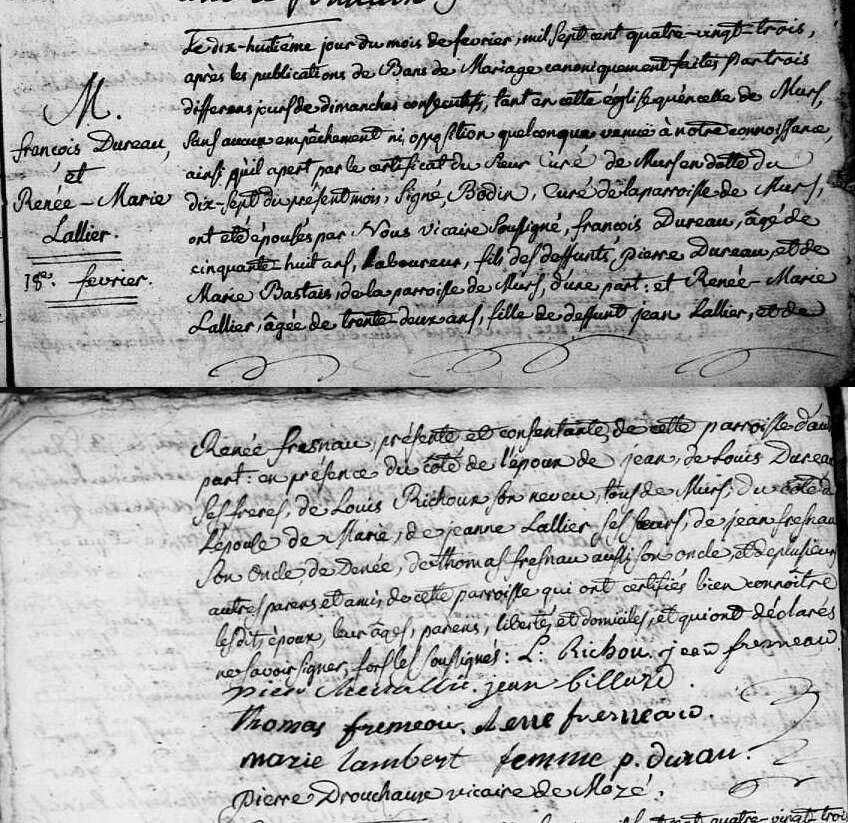 M.
françois Dureau,
et
Renée-Marie
Lallier.
18e. fevrier.
Le dix-huitieme jour du mois de fevrier, mil sept cent quatre-vingt-trois,
après les publications de Bans de Mariage canoniquement faites par trois
differens jours de dimanches consecutifs, tant en cette église qu'en celle de Murs,
sans aucun empâchement ni opposition quelconque venuë à notre connoissance,
ainsi qu'il apert par le certificat du sieur Curé de Murs en datte du
dix-sept du présent mois, signé, Bodin, Curé de la parroisse de Murs,
ont eté épousés par Nous vicaire soussigné, françois Dureau, âgé de
cinquante-huit ans, Laboureur, fils des deffunts, pierre Dureau, et de
Marie Bastais, de la parroisse de Murs, d'une part: et Renée-Marie
Lallier, âgée de trente-deux ans, fille de deffunt jean Lallier, et de
Renée fresnau, présente et consentante, de cette parroisse d'au
part: en présence du côté de l'époux de jean, de Louis Dureau
ses freres, de Louis Richoux son neveu, tous de Murs; du côté d
L'épouse de Marie, de jeanne Lallier, ses sœurs, de jean fresnau
son oncle, de Denée, de thomas fresnau aussi son oncle, et de plusieurs
autres parens et amis de cette parroisse qui ont certifiés bien connoître
lesdits époux, leur âges, parens, libertés et domiciles, et qui ont déclarés
ne savoir signer, fors les soussignés: L: Richou. jean fremeau
jean billure.
thomas fremeau.
marie lambert femme p. durau.
Pierre Drouchaux vicaire de Mozé.
quatre-vingt trois